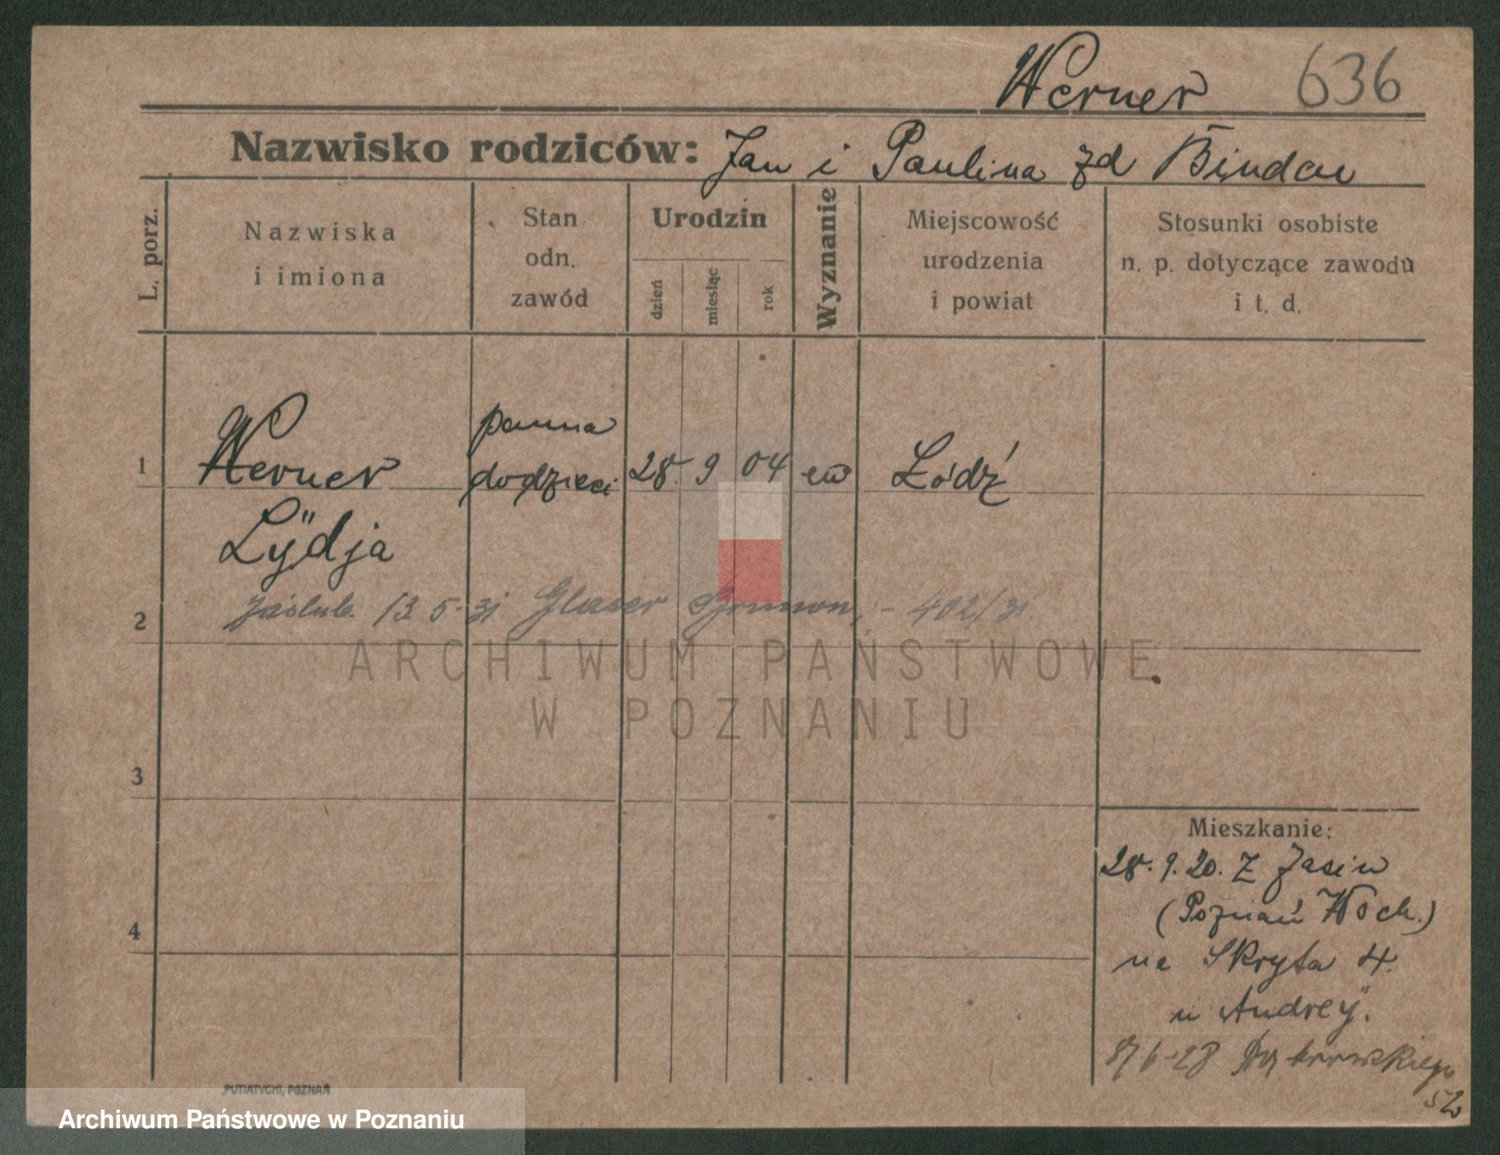 Werner 636
Nazwisko rodziców: Jan i Paulina zd Bindau
L. porz.
Nazwiska
i imiona
Stan
odn.
zawód
Urodzin
dzień
miesiąc
rok
Wyznanie
Miejscowość
urodzenia
i powiat
Stosunki osobiste
n. p. dotyczące zawodu
i t. d.
panna
1 Werner do dzieci 28. 9 04 ew Łódź
Lydja
2 zaślub. 13 5. 31 Glaser - 402/31.
3
4
Mieszkanie:
28. 9. 20. Z
(Poznań Wsch.)
na Skryta 4.
u Andrey.
8/6-28 Dąbrowskiego
52
PUTIATYCKI, POZNAŃ
ARCHIWUM PAŃSTWOWE
W POZNANIU
Archiwum Państwowe w Poznaniu